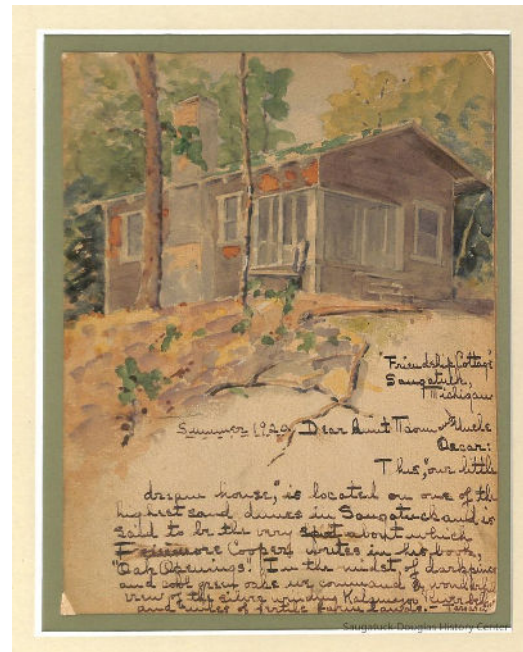 "Friendship Cottage"
Saugatuck,
Michigan
Summer 1920. Dear Aunt Naomi and Uncle
Oscar:
This, "our little
dream house," is located on one of the
highest sand dunes in Saugatuck and is
said to be the very spot about which
Fenimore Cooper writes in his book,
"Oak Openings". In the midst of dark pines
and cool green oaks we command a wonderful
view of the silver winding Kalamazoo River below
and miles of fertile farm lands. –
Saugatuck-Douglas History Center